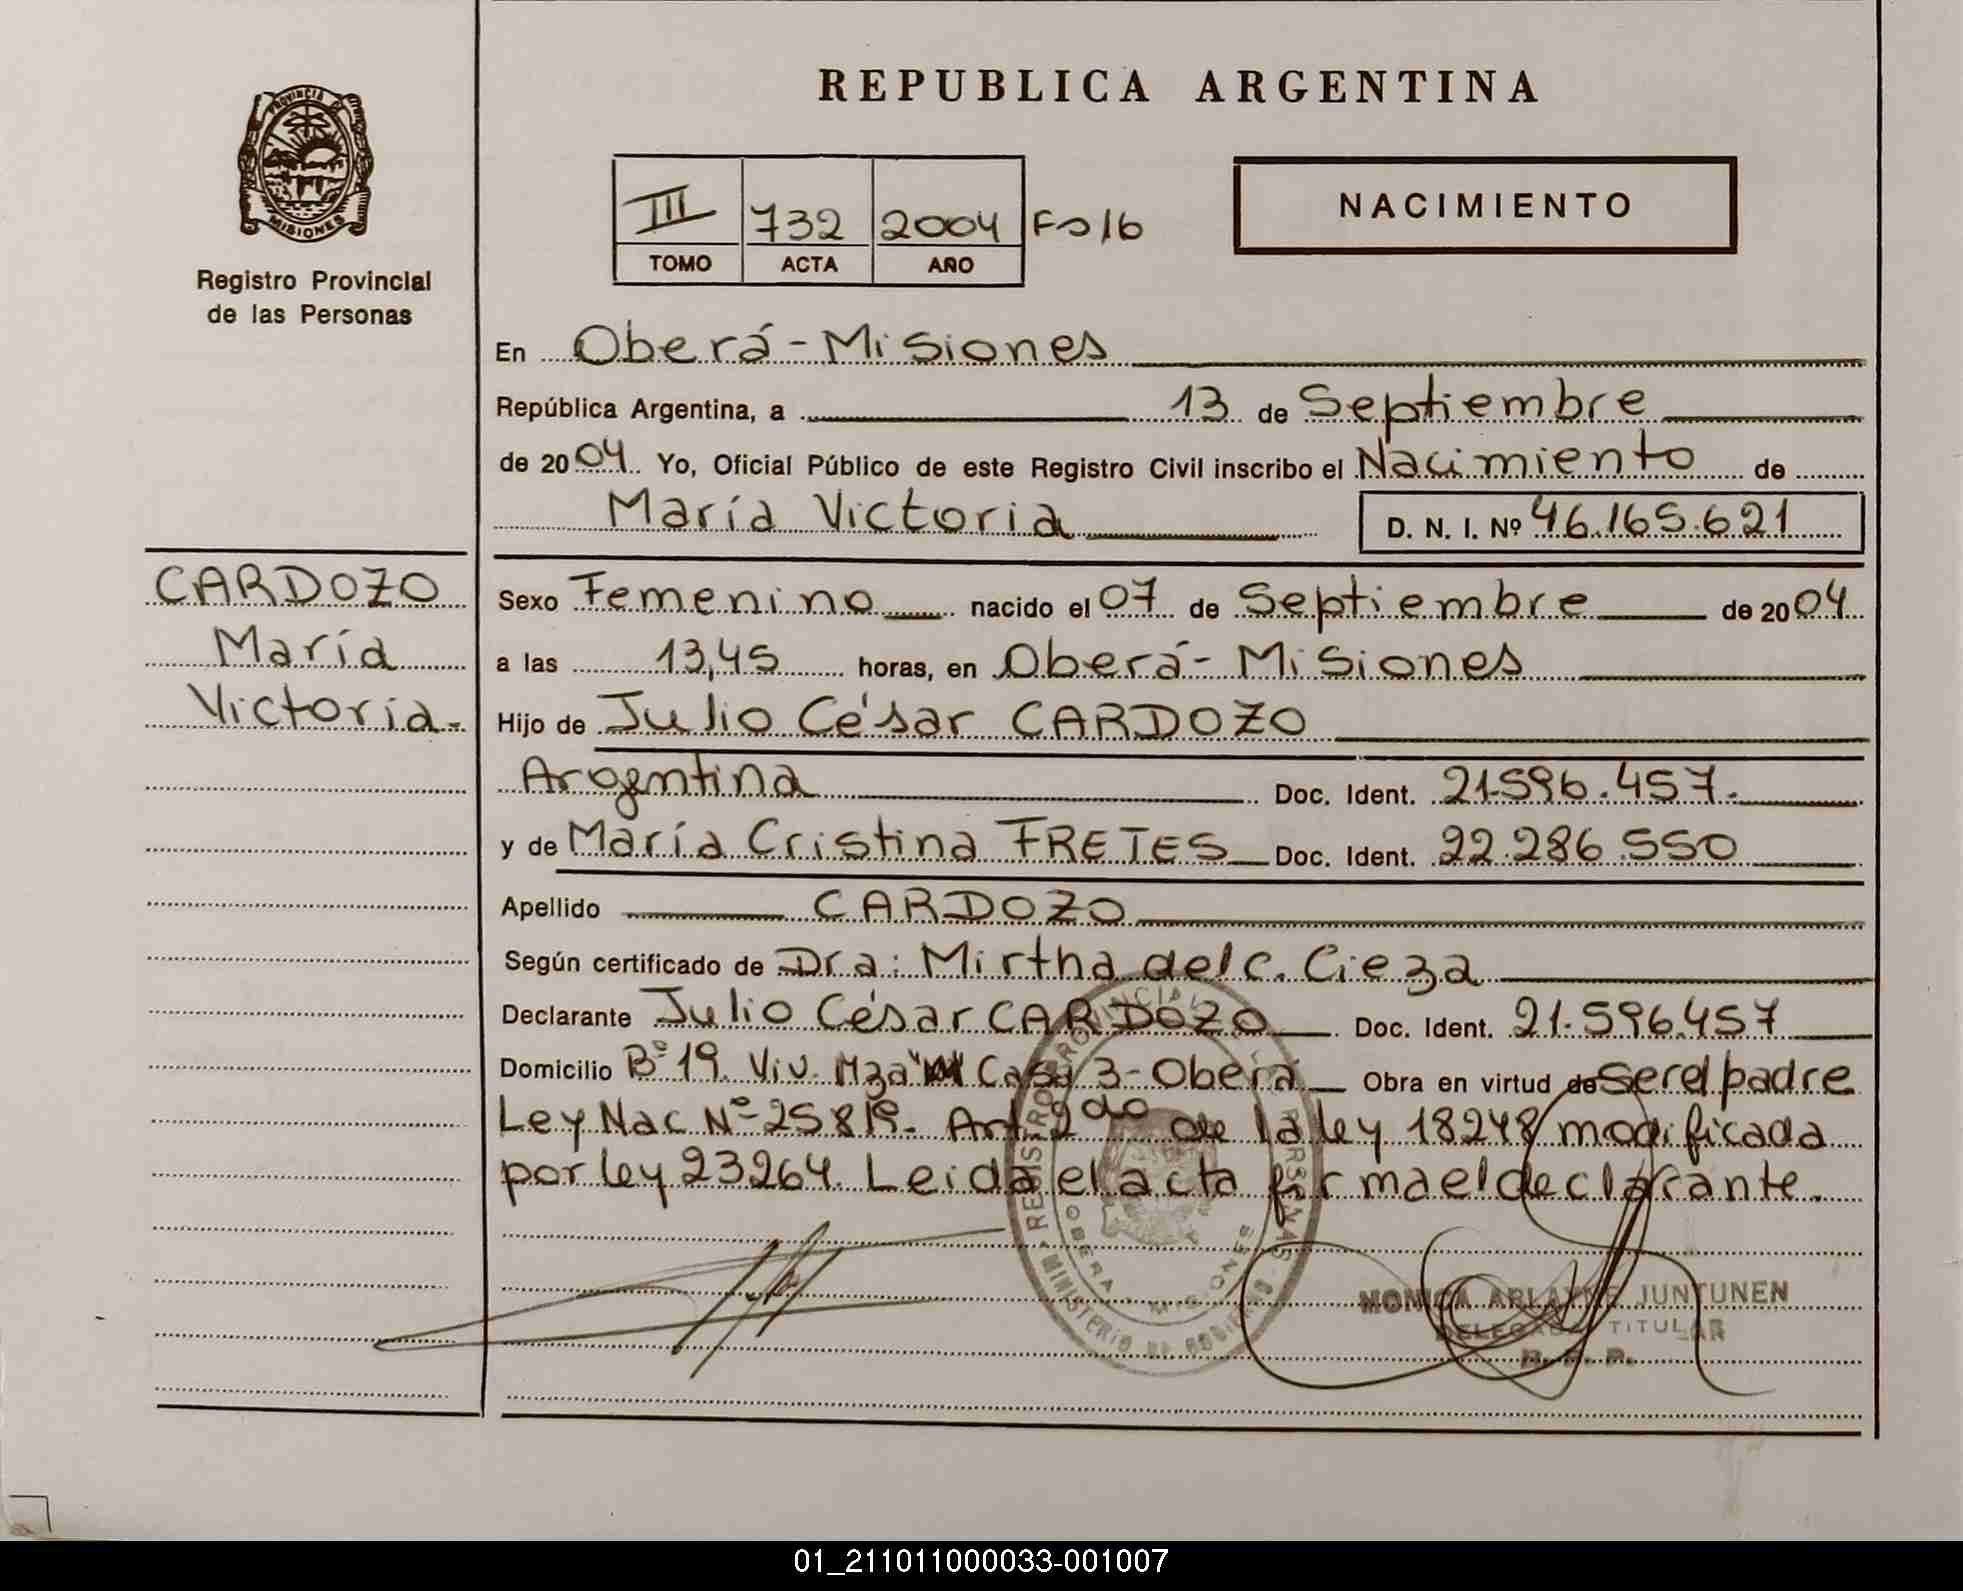 REPUBLICA ARGENTINA
PROVINCIA DE MISIONES
Registro Provincial
de las Personas
III 732 2004 Fo 16
TOMO ACTA AÑO
NACIMIENTO
En Oberá - Misiones
República Argentina, a 13 de Septiembre
de 2004. Yo, Oficial Público de este Registro Civil inscribo el Nacimiento de
María Victoria D. N. I. Nº 46.165.621
CARDOZO
María
Victoria.-
Sexo Femenino nacido el 07 de Septiembre de 2004
a las 13,45 horas, en Oberá - Misiones
Hijo de Julio César CARDOZO
Argentina Doc. Ident. 21.596.457.
y de María Cristina FRETES Doc. Ident. 22.286.550
Apellido CARDOZO
Según certificado de Dra: Mirtha del C. Cieza
Declarante Julio César CARDOZO Doc. Ident. 21.596.457
Domicilio Bº 19. Viv. Mza Casa 3 - Oberá Obra en virtud de ser el padre
Ley Nac Nº 25819. Art. 2do de la ley 18248 modificada
por ley 23264. Leida el acta firma el declarante.
REGISTRO PROVINCIAL PERSONAS
OBERA - MISIONES
MINISTERIO DE GOBIERNO
MONICA ARLAYNE JUNTUNEN
DELEGADA TITULAR
R. P. P.
01_211011000033-001007